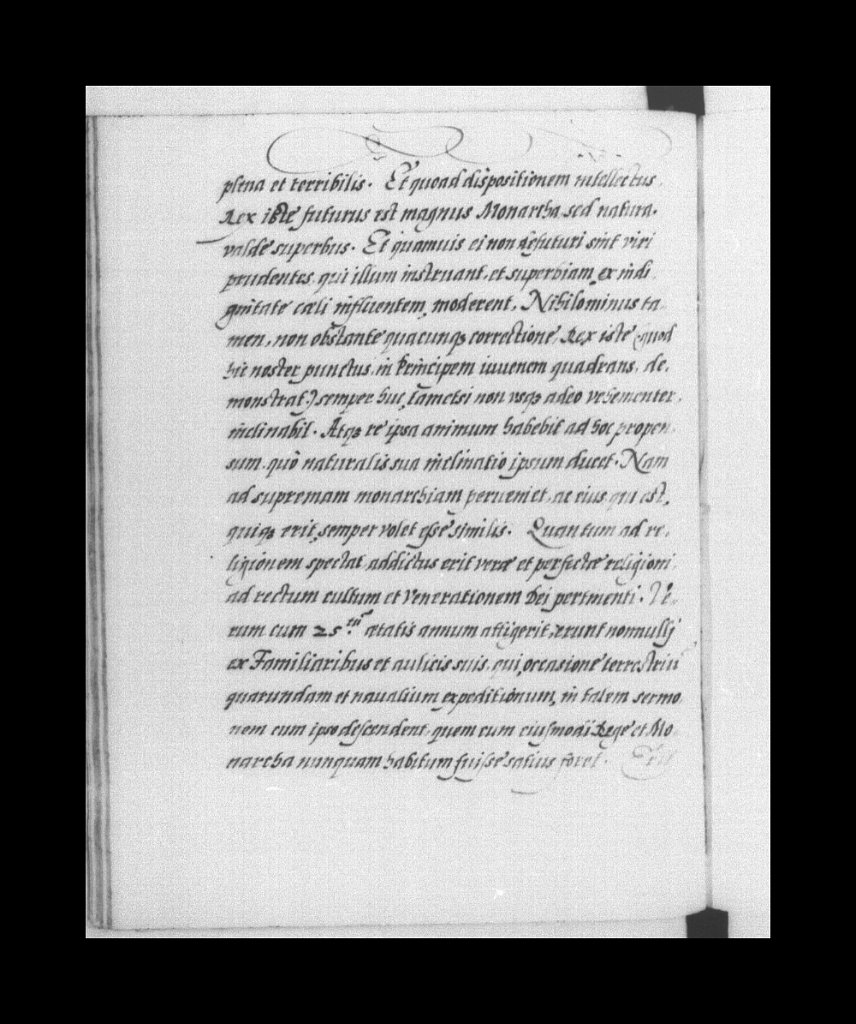 plena et terribilis. Et quoad dispositionem intellectus,
Rex iste futurus est magnus Monarcha, sed natura
valde superbus. Et quamuis ei non defuturi sint viri
prudentes, qui illum instruant, et superbiam, ex indi
gnitate cæli influentem, moderent, Nihilominus ta-
men, non obstante quacunq3 correctione, Rex iste (quod
hic noster punctus, in Principem iuuenem quadrans, de-
monstrat) semper huc, tametsi non usq3 adeo vehementer
inclinabit. Atq3 re ipsa animum habebit ad hoc propen-
sum, quò naturalis sua inclinatio ipsum ducet. Nam
ad supremam monarchiam perueniet, ac eius qui est,
quiq3 erit, semper volet esse similis. Quantum ad re-
ligionem spectat, addictus erit veræ et perfectæ religioni,
ad rectum cultum et venerationem Dei pertinenti. Ve-
rum cum 25.tū ætatis annum attigerit, erunt nonnullj
ex Familiaribus et aulicis suis, qui, occasione terrestriū
quarundam et naualium expeditionum, in talem sermo
nem cum ipso descendent, quem cum eiusmodi Rege et Mo-
narcha nunquam habitum fuisse satius foret. Erit